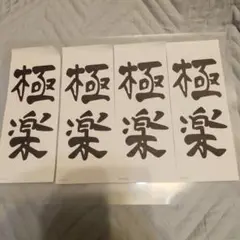 極楽
極楽
極楽
極楽